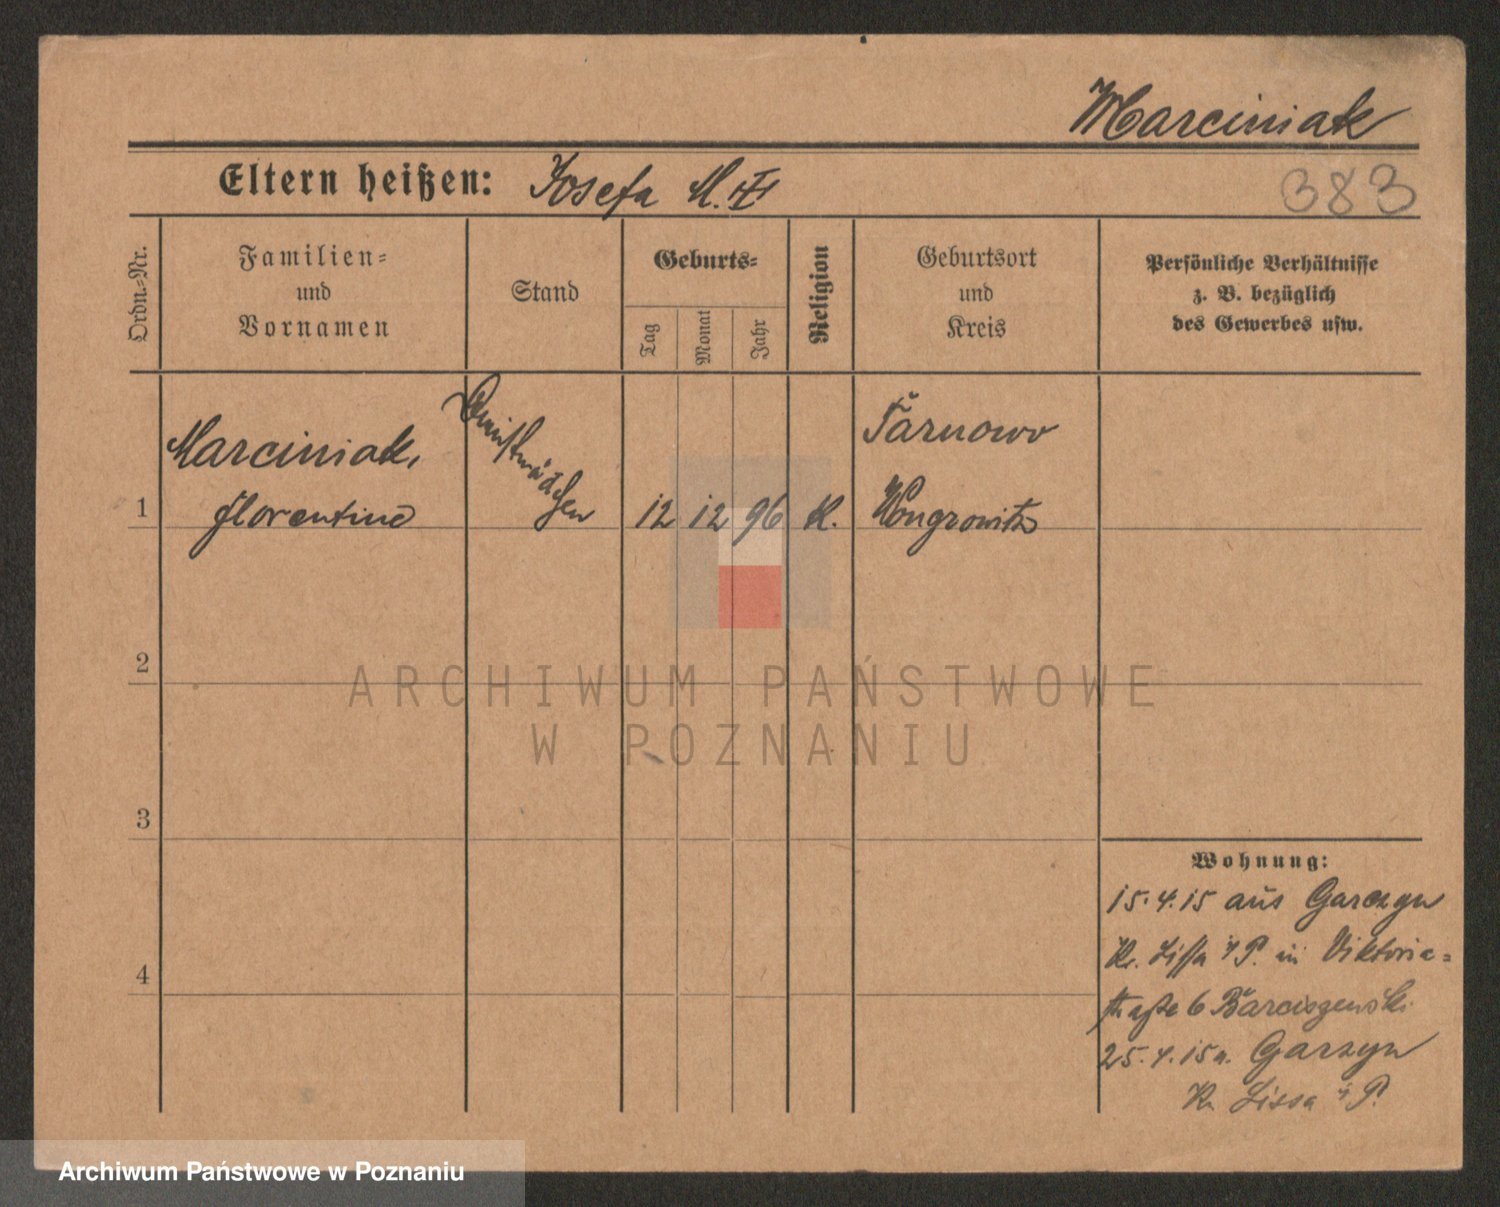 Marciniak
Eltern heißen: Josefa M.
383
Ordn.-Nr.
Familien-
und
Vornamen
Stand
Geburts-
Tag
Monat
Jahr
Religion
Geburtsort
und
Kreis
Persönliche Verhältnisse
z. B. bezüglich
des Gewerbes usw.
1
Marciniak,
Florentine
12 12 96 K.
Tarnowo
Wongrowitz
2
ARCHIWUM PAŃSTWOWE
W POZNANIU
3
Wohnung:
15.4.15 aus Garczyn
Kr. Lissa i/P. in Viktoria-
straße 6 Barciszewski
25.4.15 n. Garzyn
Kr. Lissa i/P.
4
Archiwum Państwowe w Poznaniu